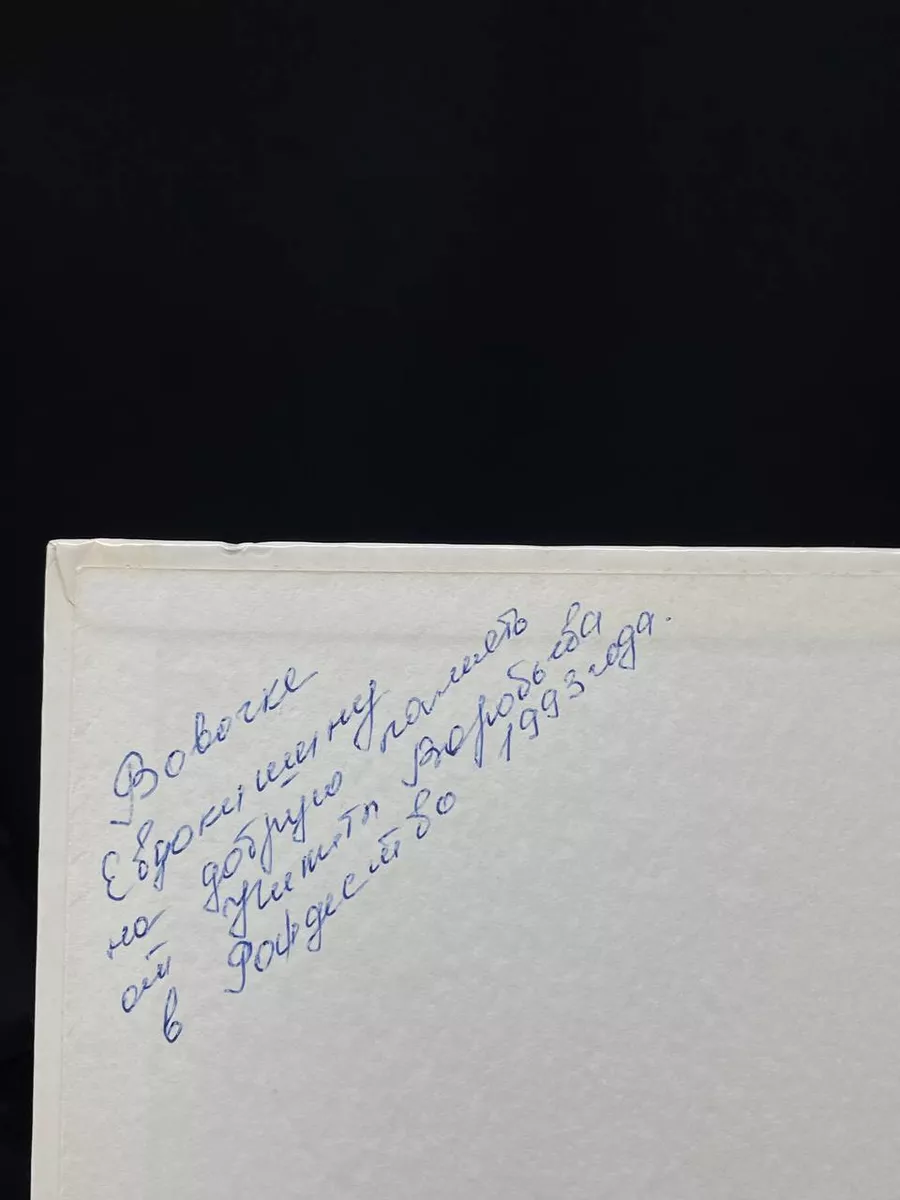 Вовочке
Евдокишину
на добрую память
от Воробьёва
в Рождество 1993 года.